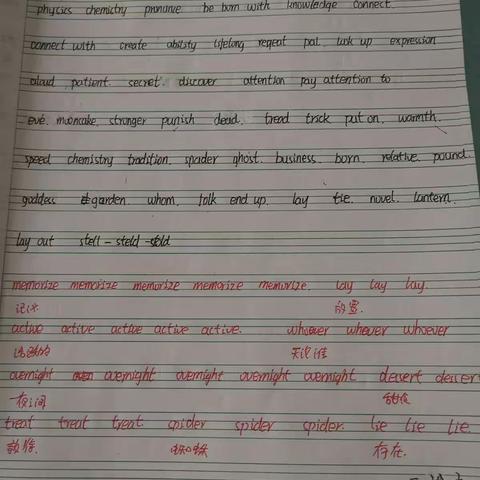 physics chemictry pronunce be born with knowledge connect.
connect with create ability lifelong repeat pal. look up expression
aloud patient. secret. discover attention pay attention to
eve. mooncake. stranger punish dead. tread trick put on. warmth.
speed chemistry tradition. spader ghost. business. born. relative. pound.
goddess garden. whom. folk end up. lay tie. novel. lantern.
lay out stell - steld - stold
memorize memorize memorize memorize memorize. lay lay lay.
记忆 放置.
active active active active active. whoever whever whoever
活动的 无论谁
overnight overnight overnight overnight overnight dessert desser
一夜间 甜点
treat treat treat. spider spider spider. lie lie lie.
款待. 蜘蛛 存在.